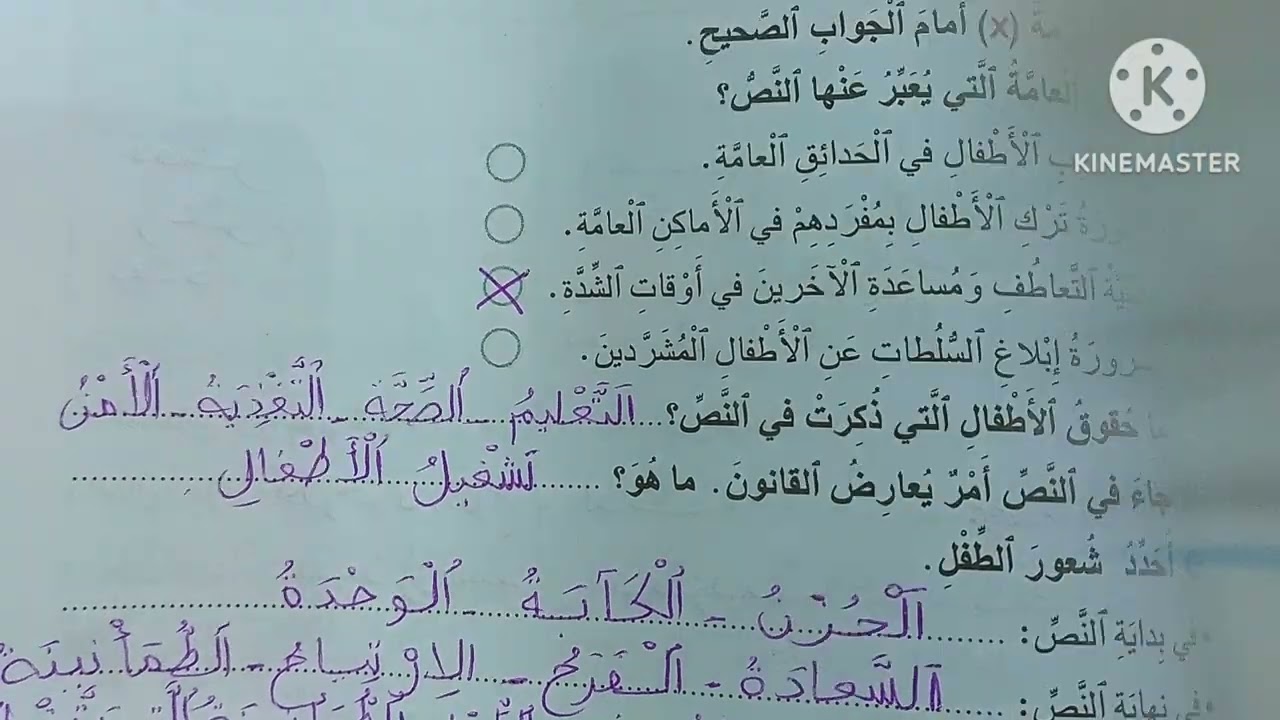 (x) أَمامَ ٱلْجَوابِ ٱلصَّحيحِ.
ٱلْعامَّةُ ٱلَّتي يُعَبِّرُ عَنْها ٱلنَّصُّ؟
ٱلْأَطْفالِ في ٱلْحَدائِقِ ٱلْعامَّةِ.
تَرْكِ ٱلْأَطْفالِ بِمُفْرَدِهِمْ في ٱلْأَماكِنِ ٱلْعامَّةِ.
ٱلتَّعاطُفِ وَمُساعَدَةِ ٱلْآخَرينَ في أَوْقاتِ ٱلشِّدَّةِ.
إِبْلاغِ ٱلسُّلُطاتِ عَنِ ٱلْأَطْفالِ ٱلْمُشَرَّدينَ.
حُقوقُ ٱلأَطْفالِ ٱلَّتي ذُكِرَتْ في ٱلنَّصِّ؟ ... اَلتَّعْليمُ - ٱلصِّحَّة - ٱلتَّغْذِيَةُ - ٱلْأَمْنُ
جاءَ في ٱلنَّصِّ أَمْرٌ يُعارِضُ ٱلقانونَ. ما هُوَ؟ ........ تَشْغيلُ ٱلْأَطْفالِ ...............
أُحَدِّدُ شُعورَ ٱلطِّفْلِ.
في بِدايَةِ ٱلنَّصِّ: ........ اَلْحُزْنُ - ٱلْكَآبَةُ - ٱلْوَحْدَةُ ...............
في نِهايَةِ ٱلنَّصِّ: ........ اَلسَّعادَةُ - ٱلْفَرَحُ - الِارْتِياحُ - اَلطُّمَأْنينَة
KINEMASTER